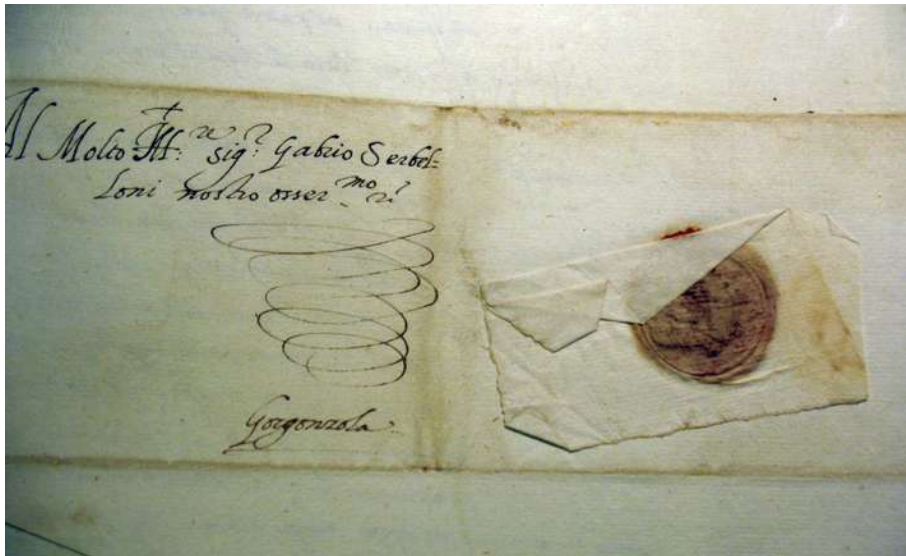 Al Molto Ill: re sig: r Gabrio Serbel=
loni nostro osser mo
Gorgonzola